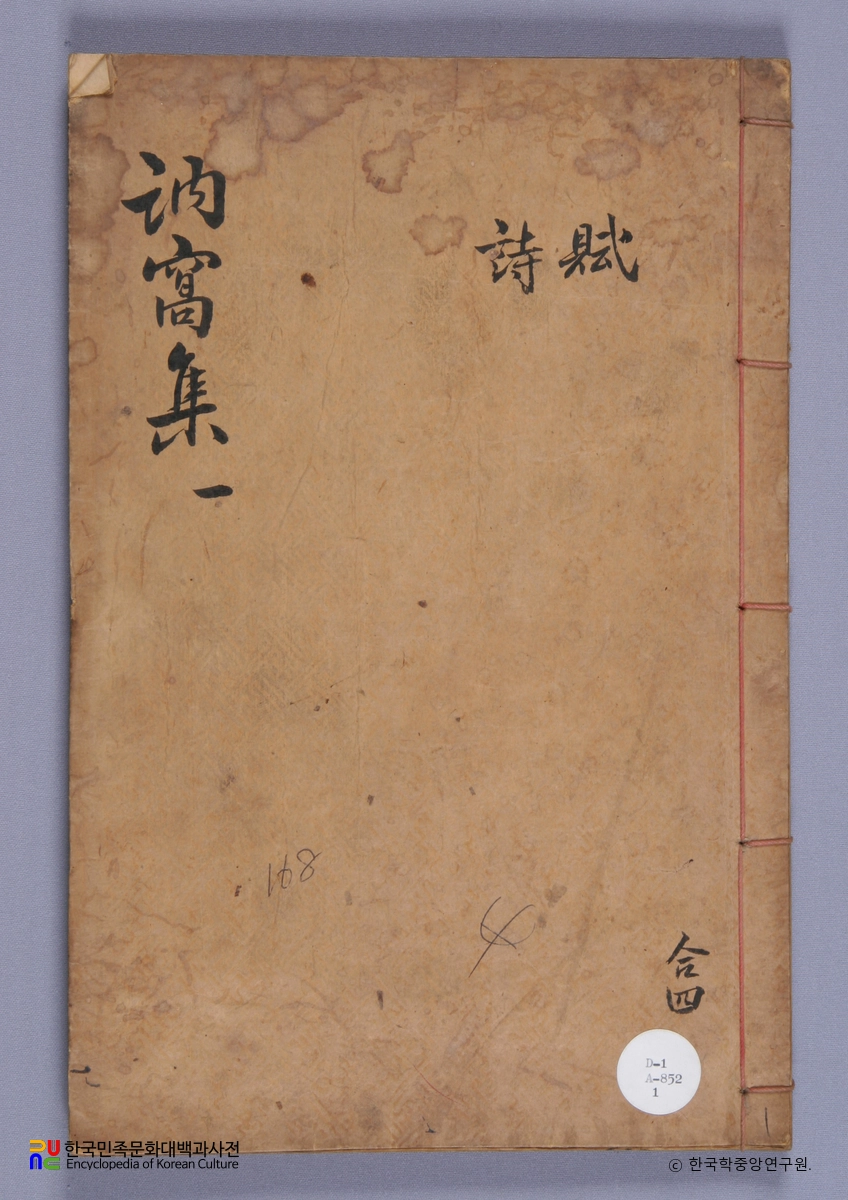 訥窩集 一
賦
詩
合四
D-1
A-852
1
한국민족문화대백과사전
Encyclopedia of Korean Culture
ⓒ 한국학중앙연구원.